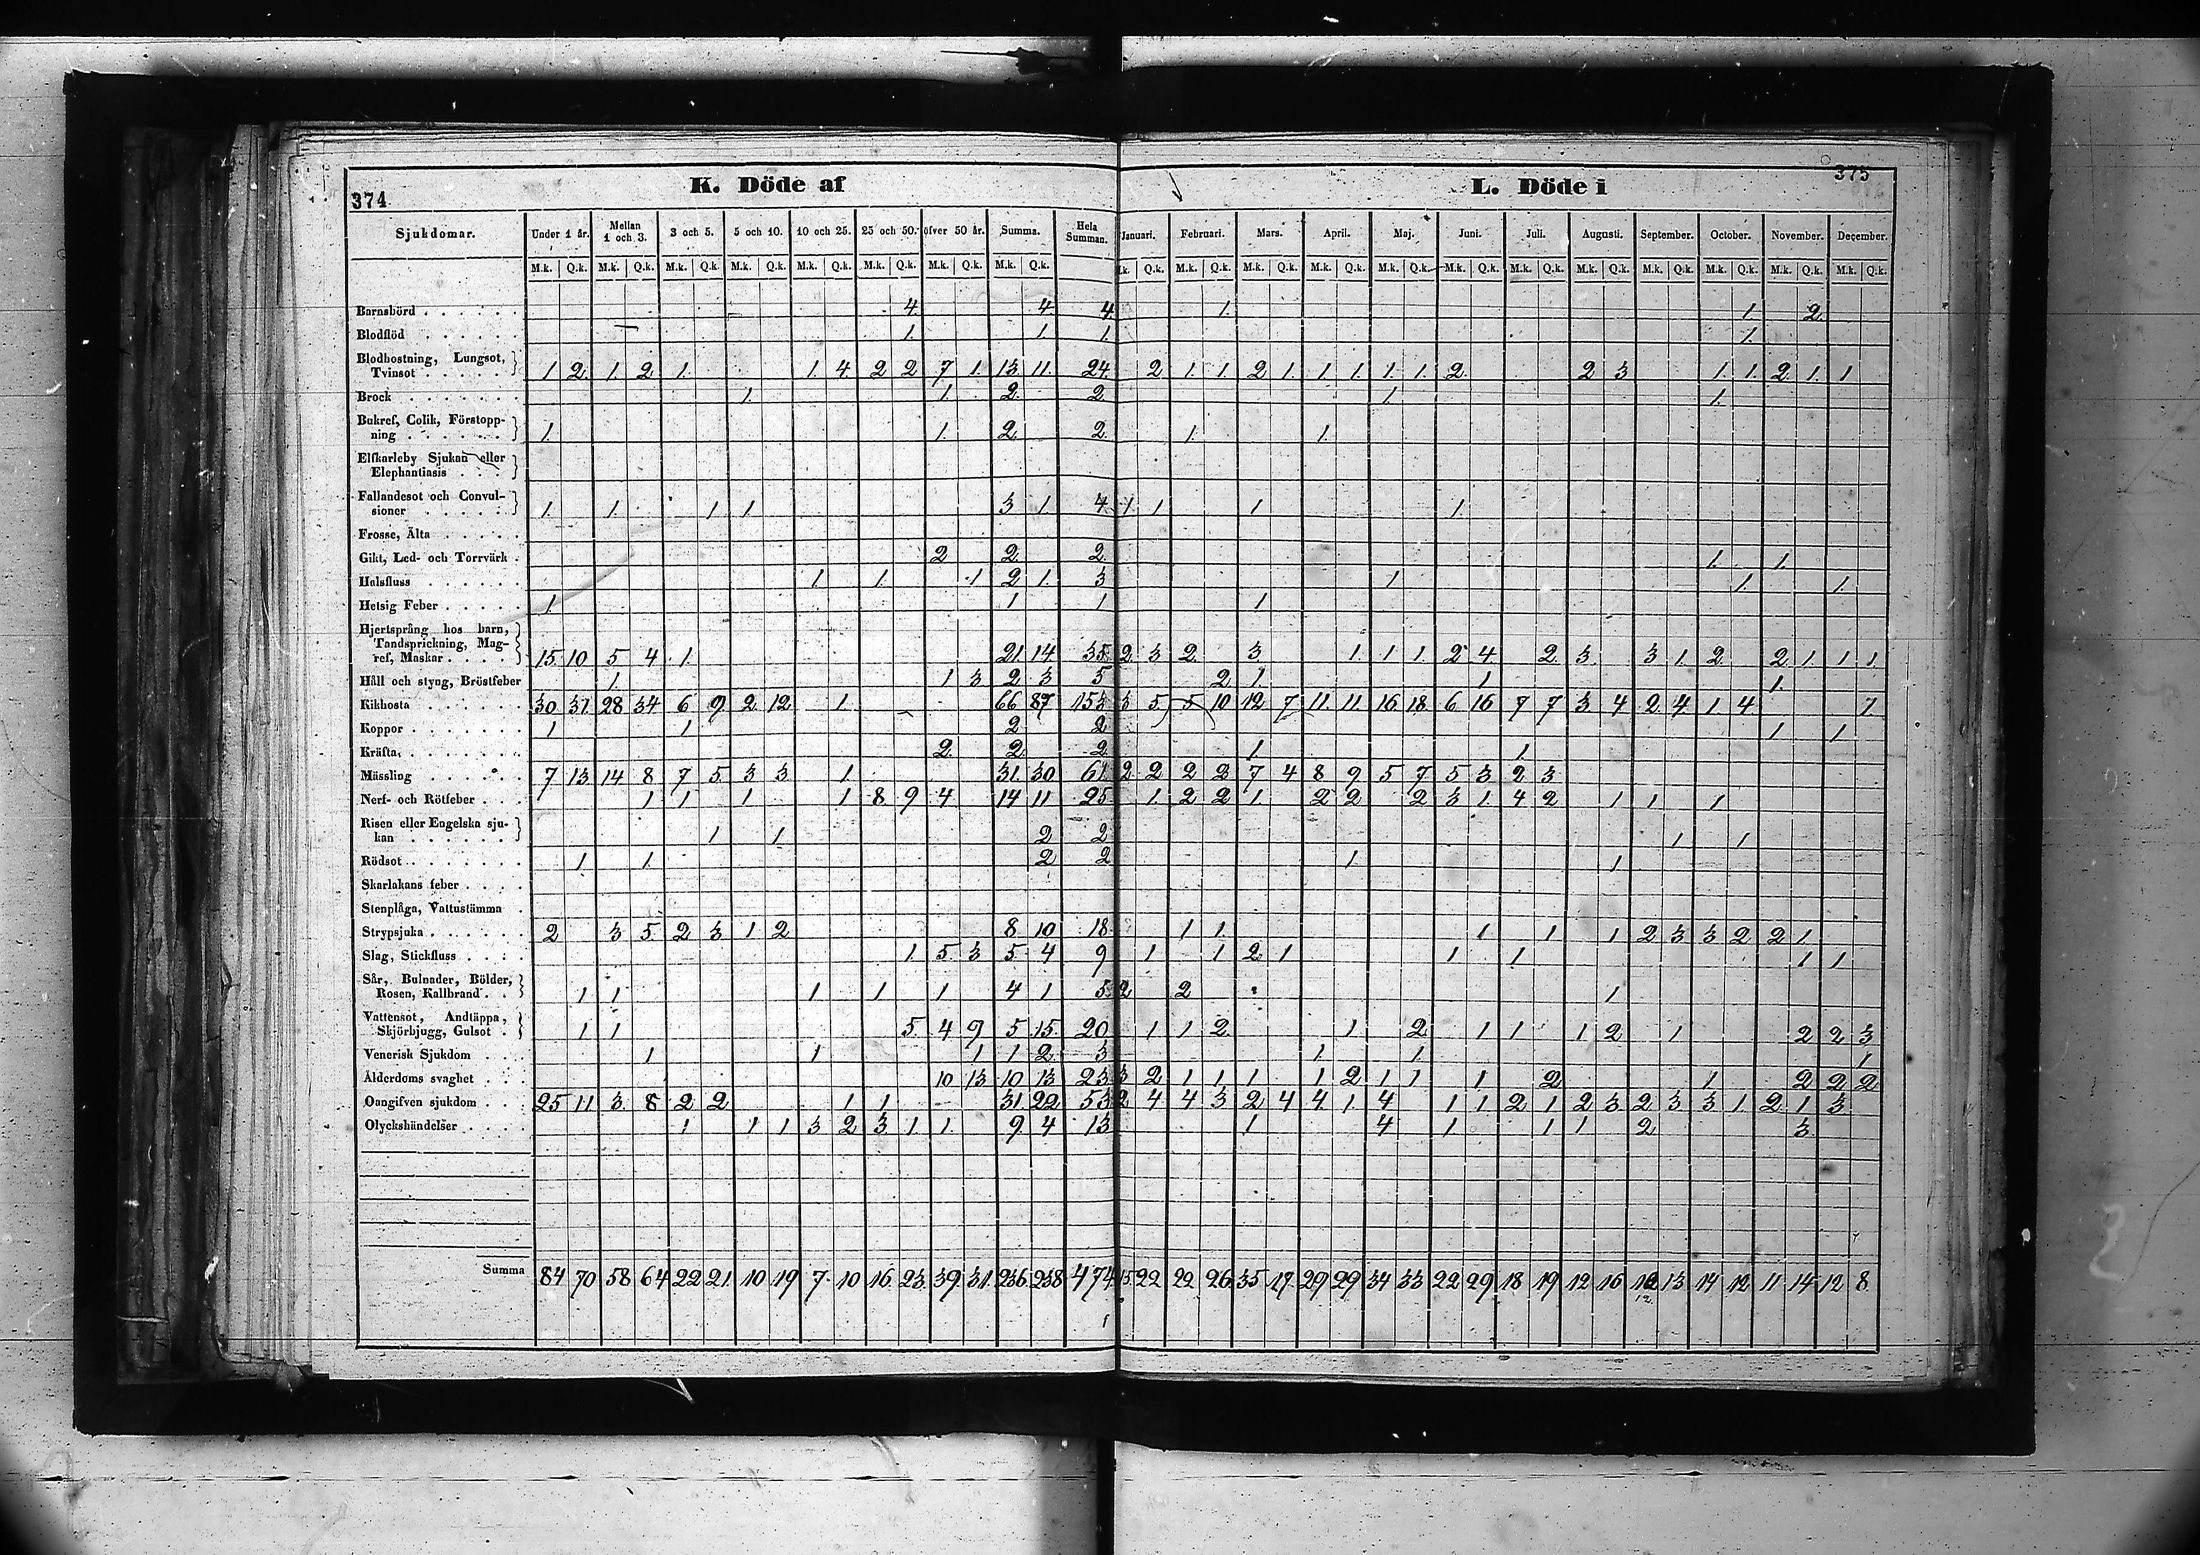 374 K. Döde af L. Döde i 375
Sjukdomar. Under 1 år. Mellan 1 och 3. 3 och 5. 5 och 10. 10 och 25. 25 och 50. öfver 50 år. Summa. Hela Summan. Januari. Februari. Mars. April. Maj. Juni. Juli. Augusti. September. October. November. December.
M.k. Q.k. M.k. Q.k. M.k. Q.k. M.k. Q.k. M.k. Q.k. M.k. Q.k. M.k. Q.k. M.k. Q.k. M.k. Q.k. M.k. Q.k. M.k. Q.k. M.k. Q.k. M.k. Q.k. M.k. Q.k. M.k. Q.k. M.k. Q.k. M.k. Q.k. M.k. Q.k. M.k. Q.k. M.k. Q.k.
Barnsbörd 4. 4. 4. 1. 1. 2.
Blodflöd 1. 1. 1. 1.
Blodhostning, Lungsot,
Tvinsot 1 2 1. 2 1. 1. 4. 2 2 7 1. 13 11. 24. 2 1. 1 2 1. 1 1. 1. 1. 2. 2 3 1. 1. 2 1. 1
Brock 1. 1. 2. 2. 1. 1.
Bukref, Colik, Förstopp-
ning 1. 1. 2. 2. 1. 1.
Elfkarleby Sjukan eller
Elephantiasis
Fallandesot och Convul-
sioner 1. 1. 1 1 3 1 4. 1. 1 1 1.
Frosse, Älta
Gikt, Led- och Torrvärk 2 2 2. 1. 1.
Halsfluss 1. 1. 1 2 1. 3 1 1. 1.
Hetsig Feber 1. 1 1 1
Hjertsprång hos barn,
Tandsprickning, Mag-
ref, Maskar 15 10 5 4 1. 21. 14 35. 2 3 2 3 1. 1 1. 2 4. 2. 3. 3 1 2 2 1 1 1.
Håll och styng, Bröstfeber 1 1 3 2 3 5 2 1 1 1.
Kikhosta 30 37 28 34 6 9 2 12 1. 66 87 153 3 5 5 10 12 7 11. 11. 16 18. 6 16 7 7 3 4 2 4. 1 4 1.
Koppor 1 1 2 2 1 1
Kräfta 2 2. 2 1 1.
Mässling 7 13 14 8 7 5 3 3 1 31. 30 61. 2 2 2 2 7 4 8 9 5 7 5 3 2 3
Nerf- och Rötfeber 1 1 1 1 8 9 4 14 11 25 1. 2 2 1. 2 2 2 3 1. 4 2 1 1 1
Risen eller Engelska sju-
kan 1 1 2 2 1 1
Rödsot 1 1. 2 2 1 1
Skarlakans feber
Stenplåga, Vattustämma
Strypsjuka 2 3 5 2 3 1 2 8 10 18. 1 1. 1 1 1 2 3 3 2 2 1
Slag, Stickfluss 1. 5 3 5 4 9 1 1 2 1 1 1 1 1
Sår, Bulnader, Bölder,
Rosen, Kallbrand 1 1 1 1 1 4 1 5 2 2 1
Vattensot, Andtäppa,
Skjörbjugg, Gulsot 1 1 5. 4 9 5 15. 20 1 1 2 1 2 1 1 1 2 1 2 2 3
Venerisk Sjukdom 1 1 1 1 2 3 1 1. 1
Ålderdoms svaghet 10 13 10 13 23 3 2 1 1 1 1 2 1 1 1 2 1 2 2 2
Oangifven sjukdom 25 11 3 8 2 2 1 1 31. 22 53 2 4 4 3 2 4 4. 1. 4 1 1 2 1 2 3 2 3 3 1. 2 1 3
Olyckshändelser 1 1 1 3 2 3 1 1. 9. 4 13 1 4 1 1 1 2 3
Summa 84 70 58 64 22 21 10 19 7. 10 16 23 39 31. 236 238 474 15 22 22 26 35 27 29 29 34 33 22 29 18 19 12 16 12 13 14 12 11 14 12 8.
12